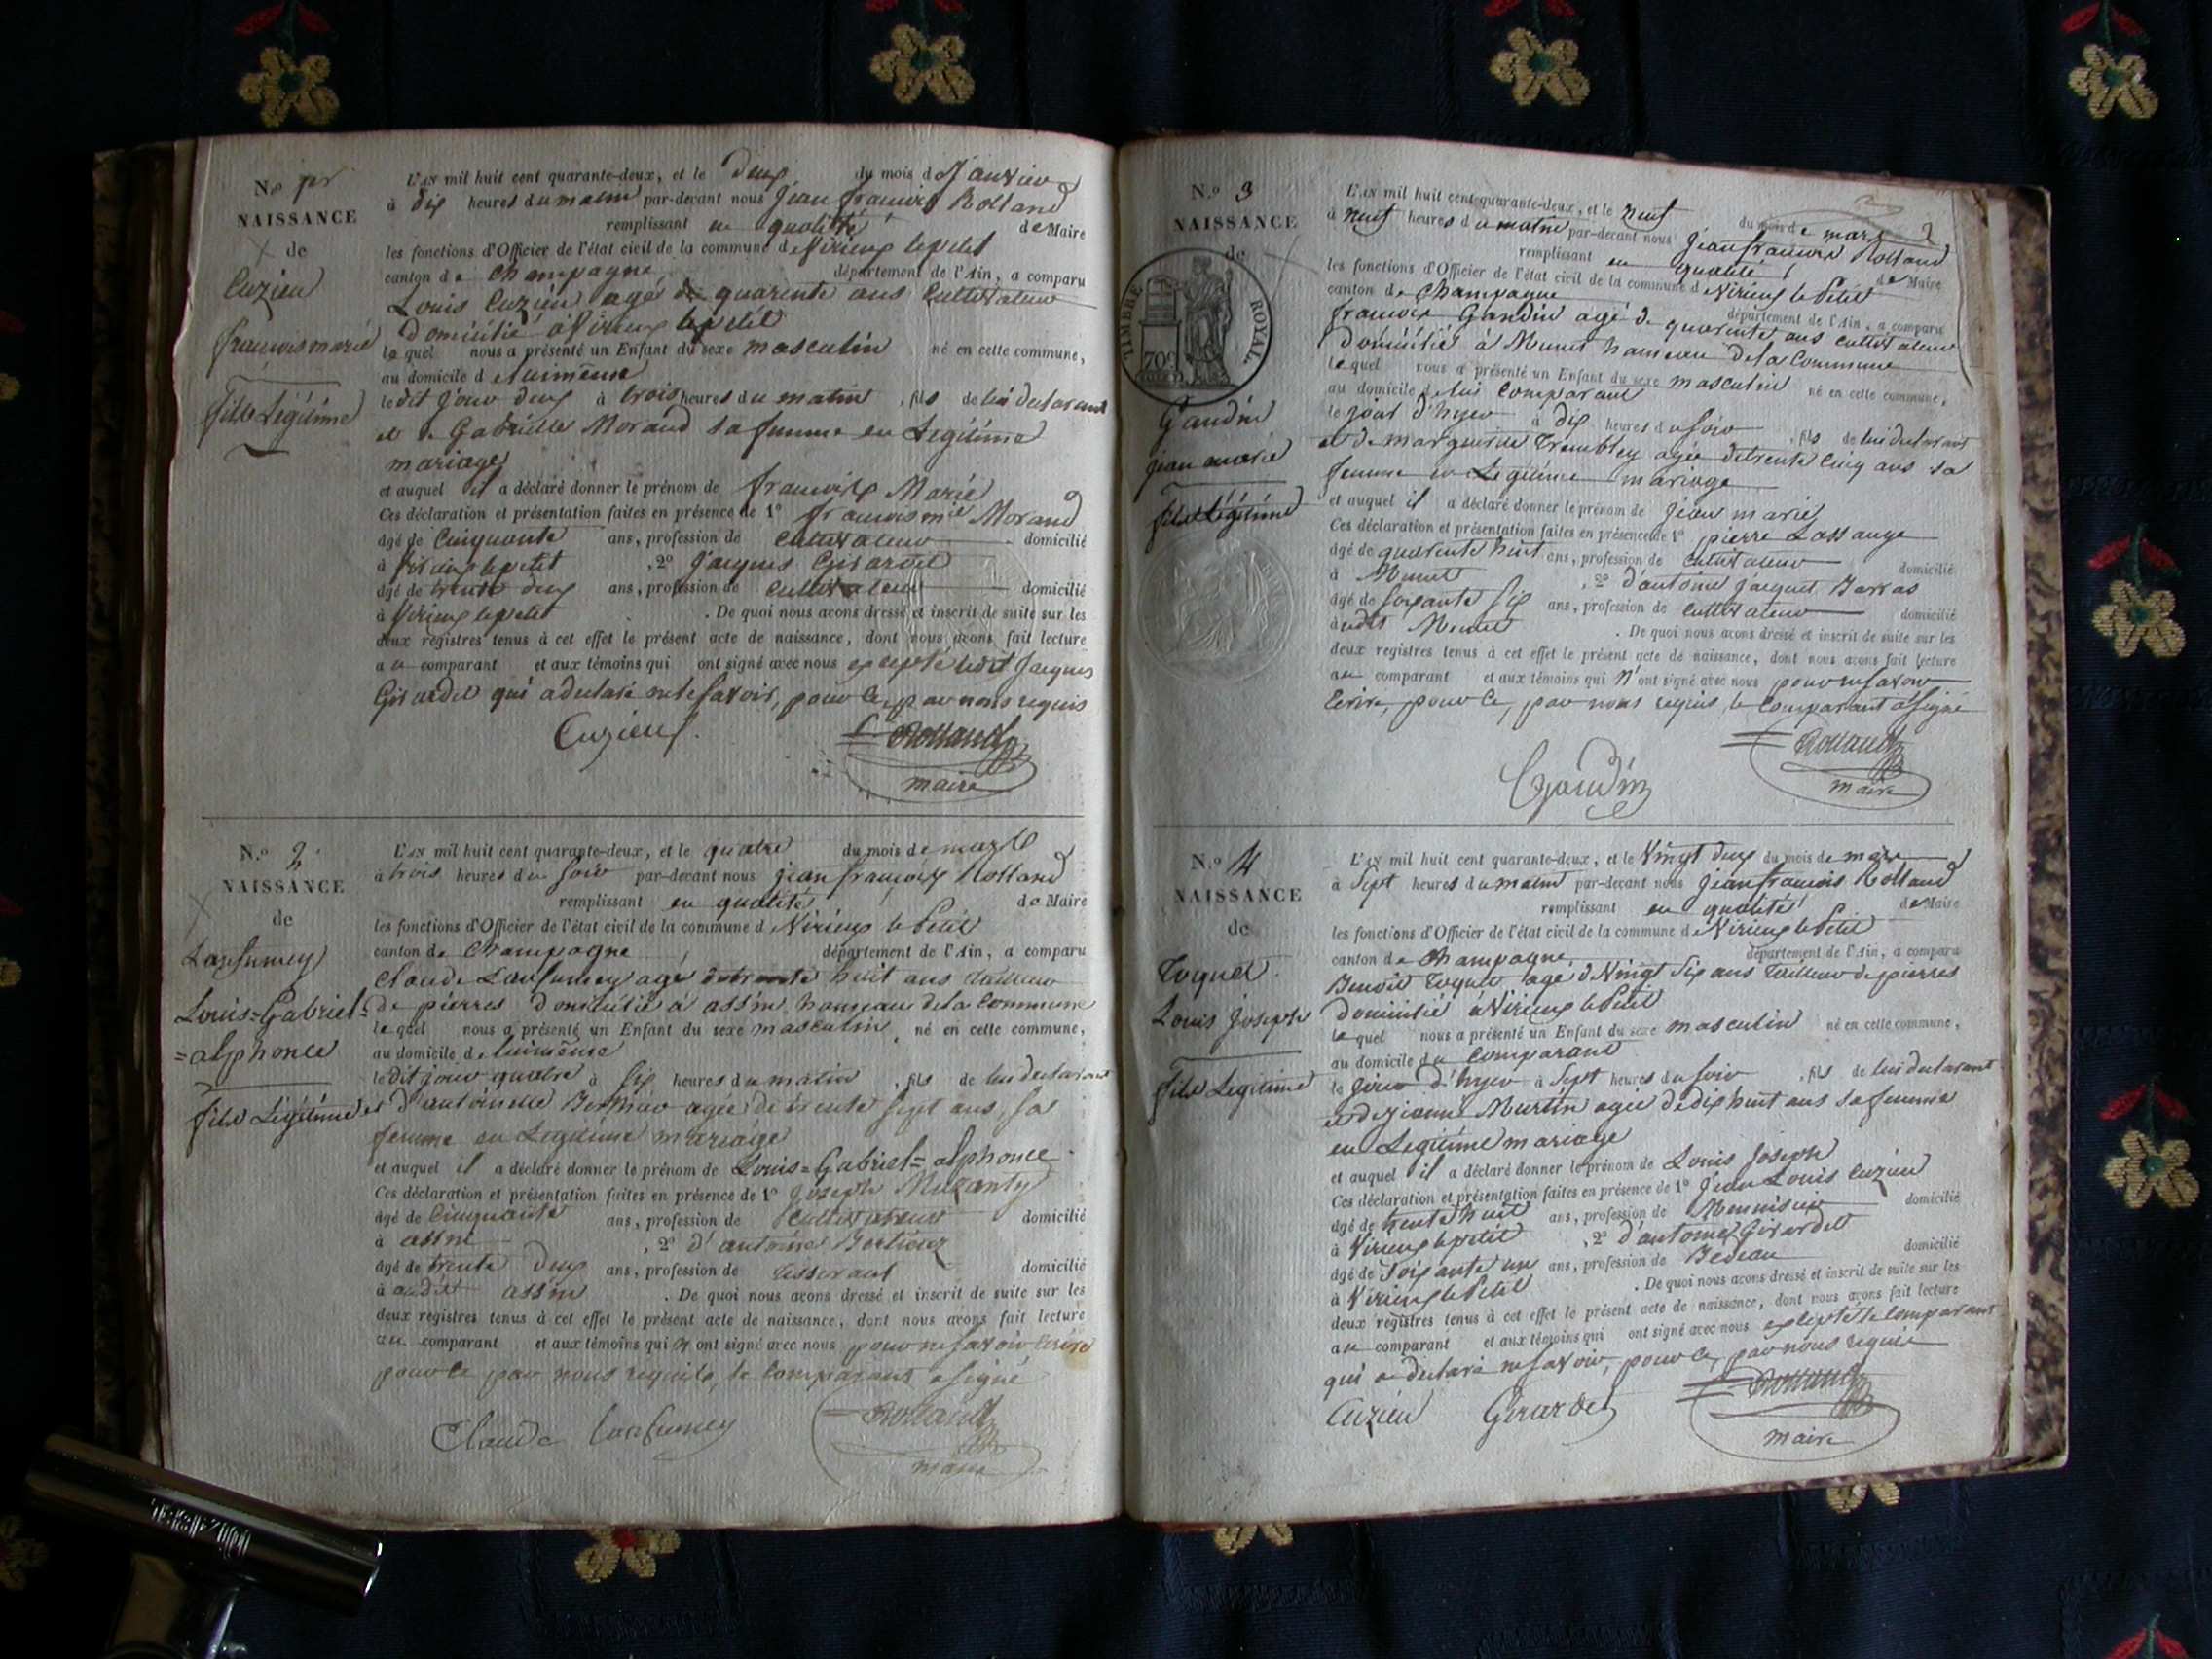 N.o pr
NAISSANCE
de
Cuzieu
françois marie
fils Légitime
L'AN mil huit cent quarante-deux, et le deux du mois d Janvier
à dix heures du matin par-devant nous Jean françois Rolland
remplissant en qualité de Maire
les fonctions d'Officier de l'état civil de la commune d Virieux le petit
canton de Champagne département de l'Ain, a comparu
Louis Cuzieu agé de quarente ans Cultivateur
Domicilié à Virieux le petit
lequel nous a présenté un Enfant du sexe masculin né en cette commune,
au domicile de luimême
ledit jour deux à trois heures du matin, fils de lui declarant
et de Gabrielle Morand sa femme en Legitime
mariage
et auquel il a déclaré donner le prénom de françois Marie
Ces déclaration et présentation faites en présence de 1o françois mie Morand
âgé de Cinquante ans, profession de cultivateur domicilié
à Virieux le petit, 2o Jacques Girardet
âgé de trente deux ans, profession de cultivateur domicilié
à Virieux le petit. De quoi nous avons dressé et inscrit de suite sur les
deux registres tenus à cet effet le présent acte de naissance, dont nous avons fait lecture
au comparant et aux témoins qui ont signé avec nous excepté ledit Jacques
Girardet qui a declaré ne le savoir, pour ce, par nous requis
Cuzieu
Rolland
maire
N.o 2
NAISSANCE
de
Lansumey
Louis=Gabriel=
=alphonce
fils Légitime
L'AN mil huit cent quarante-deux, et le quatre du mois de mars
à trois heures du soir par-devant nous jean françois Rolland
remplissant en qualité de Maire
les fonctions d'Officier de l'état civil de la commune d Virieux le Petit
canton de Champagne département de l'Ain, a comparu
Claude Lansumey agé de trente huit ans tailleur
de pierres domicilié à assin hameau de la Commune
lequel nous a présenté un Enfant du sexe masculin, né en cette commune,
au domicile de luimême
ledit jour quatre à six heures du matin, fils de lui declarant
et d'antoinette agée de trente sept ans, sa
femme en Legitime mariage
et auquel il a déclaré donner le prénom de Louis=Gabriel=alphonce
Ces déclaration et présentation faites en présence de 1o Joseph
âgé de Cinquante ans, profession de Cultivateur domicilié
à assin, 2o d'antoine
âgé de trente deux ans, profession de tisserant domicilié
à audit assin. De quoi nous avons dressé et inscrit de suite sur les
deux registres tenus à cet effet le présent acte de naissance, dont nous avons fait lecture
au comparant et aux témoins qui n'ont signé avec nous pour ne savoir Ecrire
pour ce par nous requis, le Comparant a signé
Claude Lansumey
Rolland
maire
N.o 3
NAISSANCE
de
TIMBRE ROYAL
70c
Gaudin
jean marie
fils Légitime
2
L'AN mil huit cent quarante-deux, et le neuf du mois de mars
à neuf heures du matin par-devant nous Jean françois Rolland
remplissant en qualité de Maire
les fonctions d'Officier de l'état civil de la commune d Virieux le Petit
canton de Champagne département de l'Ain, a comparu
françois Gaudin agé de quarente ans cultivateur
Domicilié à Munet hameau de la Commune
lequel nous a présenté un Enfant du sexe masculin né en cette commune,
au domicile de lui Comparant
le jour d'hyer à dix heures du soir, fils de lui declarant
et de marguerite Trembley agée de trente Cinq ans sa
femme en Legitime mariage
et auquel il a déclaré donner le prénom de jean marie
Ces déclaration et présentation faites en présence de 1o pierre Lassauge
âgé de quarente huit ans, profession de Cultivateur domicilié
à Munet, 2o d'antoine Jacquet
âgé de soixante six ans, profession de cultivateur domicilié
à audit Munet. De quoi nous avons dressé et inscrit de suite sur les
deux registres tenus à cet effet le présent acte de naissance, dont nous avons fait lecture
au comparant et aux témoins qui n'ont signé avec nous pour ne savoir
Ecrire, pour ce, par nous requis, le Comparant a signé
Gaudin
Rolland
maire
N.o 4
NAISSANCE
de
Toquet
Louis Joseph
fils Legitime
L'AN mil huit cent quarante-deux, et le Vingt deux du mois de mars
à Sept heures du matin par-devant nous jean francois Rolland
remplissant en qualité de Maire
les fonctions d'Officier de l'état civil de la commune d Virieux le Petit
canton de Champagne département de l'Ain, a comparu
Benoit Toquet agé de Vingt Six ans Tailleur de pierres
Domicilié à Virieux le Petit
lequel nous a présenté un Enfant du sexe masculin né en cette commune,
au domicile du Comparant
le jour d'hyer à Sept heures du soir, fils de lui declarant
et de jeanne Martin agée de dix huit ans sa femme
en Legitime mariage
et auquel il a déclaré donner le prénom de Louis Joseph
Ces déclaration et présentation faites en présence de 1o Jean Louis Cuzieu
âgé de trente huit ans, profession de Menuisier domicilié
à Virieux le petit, 2o d'antoine Girardet
âgé de Soixante un ans, profession de Bedeau domicilié
à Virieux le Petit. De quoi nous avons dressé et inscrit de suite sur les
deux registres tenus à cet effet le présent acte de naissance, dont nous avons fait lecture
au comparant et aux témoins qui ont signé avec nous excepté le Comparant
qui a declaré ne savoir, pour ce, par nous requis
Cuzieu Girardet
Rolland
maire